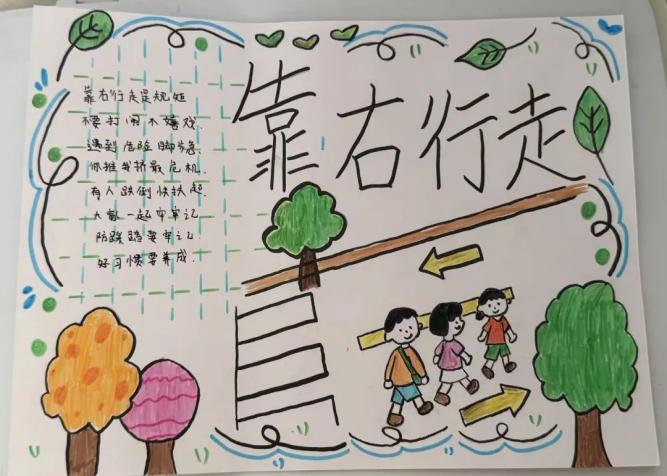 靠右行走
靠右行走是规矩
不要打闹不嬉戏.
遇到危险脚步急.
你推我挤最危机.
有人跌倒快扶起.
大家一起牢牢记
防踩踏要牢记.
好习惯要养成.